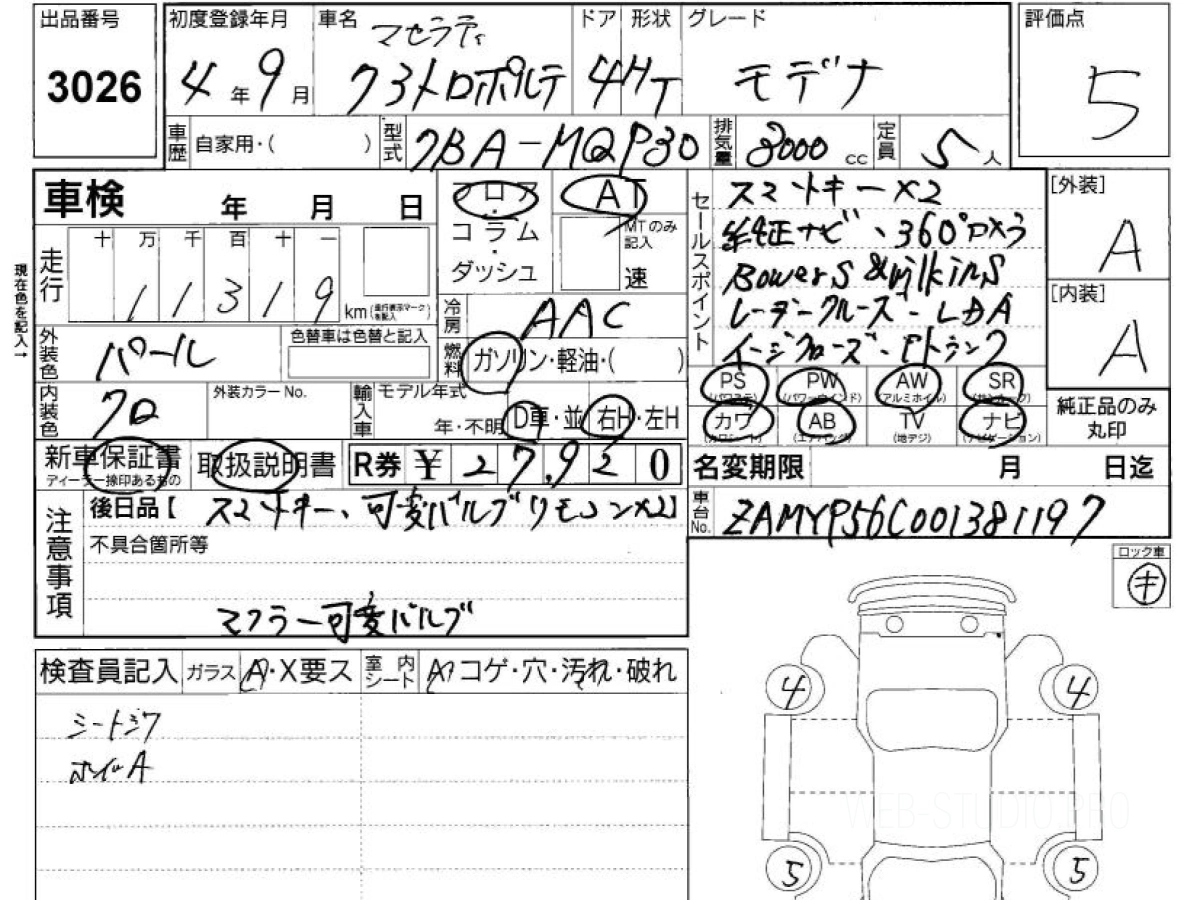 出品番号
3026
初度登録年月
4年9月
車名
マセラティ
クアトロポルテ
ドア
4
形状
HT
グレード
モデナ
評価点
5
車歴
自家用・( )
型式
7BA-MQP30
排気量
3000 cc
定員
5人
車検 年 月 日
走行
十 万 千 百 十 一
1 1 3 1 9 km (走行表示マークを記入)
現在色を記入→
外装色
パール
色替車は色替と記入
内装色
クロ
外装カラーNo.
フロア
・
コラム
・
ダッシュ
AT
MTのみ記入
速
冷房
AAC
燃料
ガソリン・軽油・( )
輸入車
モデル年式
年・不明
D車・並
右H・左H
セールスポイント
スマートキー×2
純正ナビ、360°
Bowers & wilkins
レーダークルーズ・LDA
イージクローズ・Pトランク
[外装]
A
[内装]
A
PS
(パワステ)
PW
(パワーウインド)
AW
(アルミホイル)
SR
(サンルーフ)
カワ
(カワシート)
AB
(エアバッグ)
TV
(地デジ)
ナビ
(ナビゲーション)
純正品のみ
丸印
新車保証書
ディーラー捺印あるもの
取扱説明書
R券 ¥ 27,920
名変期限 月 日迄
注意事項
後日品【スマートキー、可変バルブリモコン×2】
不具合箇所等
マフラー可変バルブ
車台No.
ZAMYP56C001381197
ロック車
キ
検査員記入
ガラス
A・X要ス
室内シート
A コゲ・穴・汚れ・破れ
シートシワ
ホイルA
4
4
5
5
WEB-STUDIO.PRO